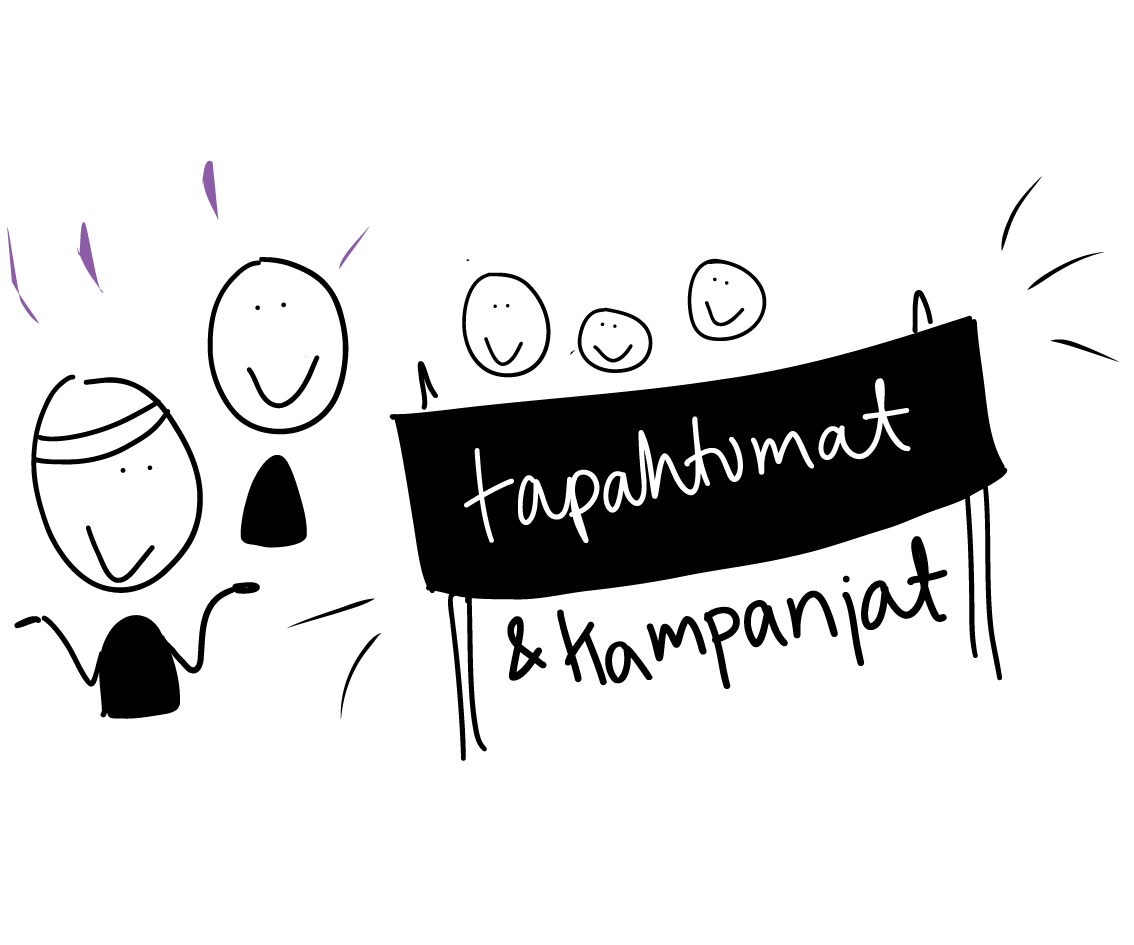 tapahtumat
& kampanjat